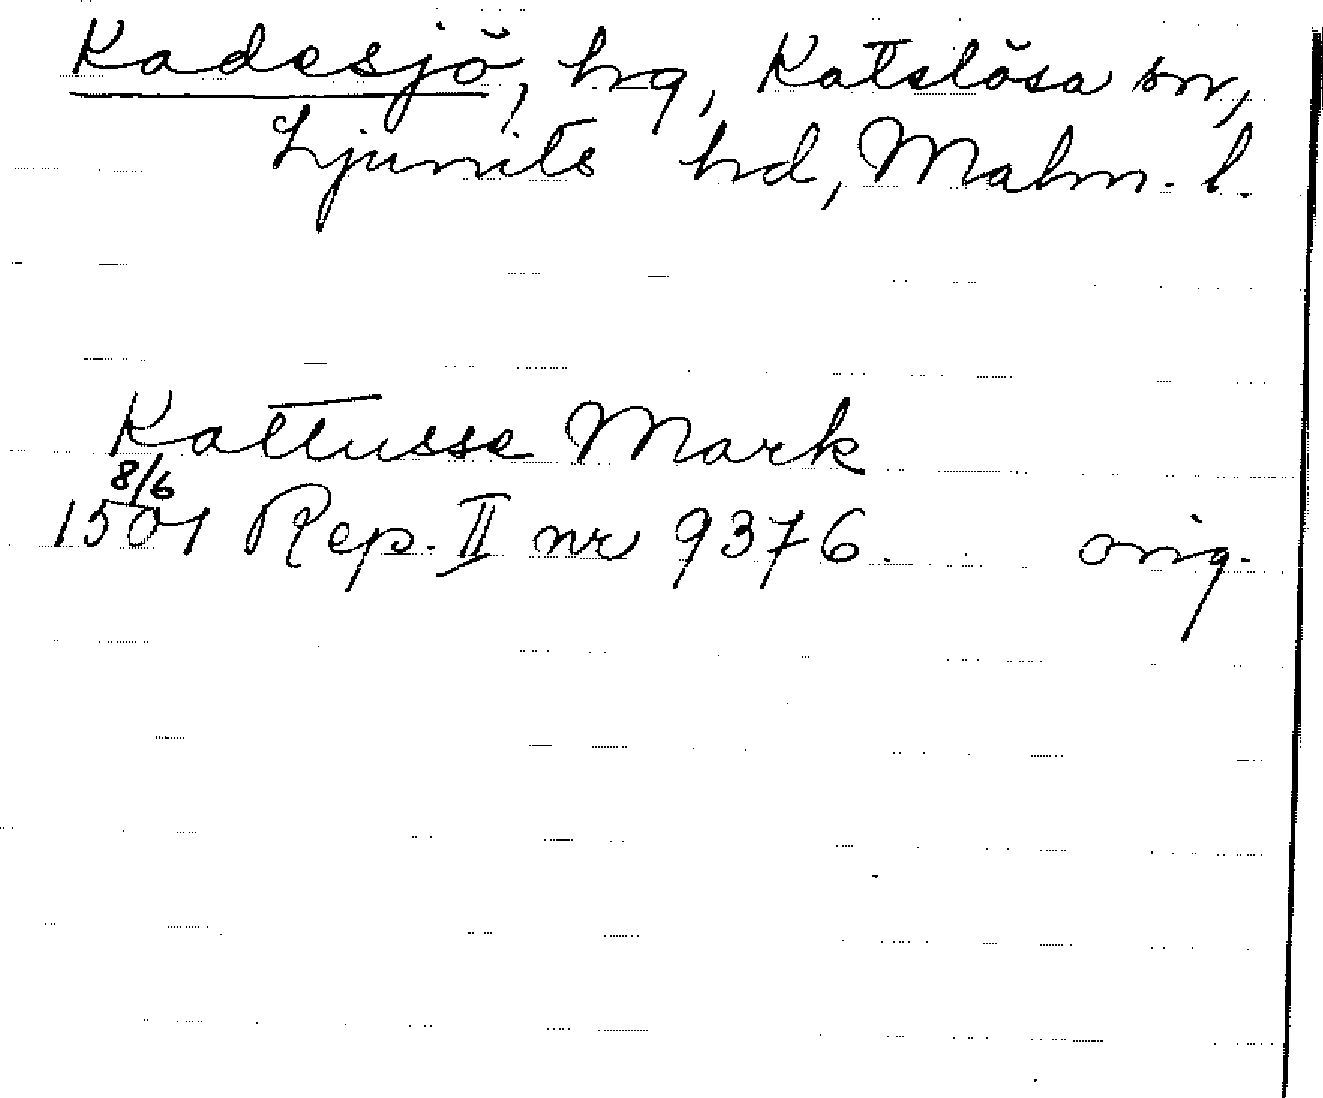 Kadesjö, hg, Katslösa sn,
Ljunits hd, Malm. l.
Kattusse Mark
8/6
1501 Rep. II nr 9376. orig.